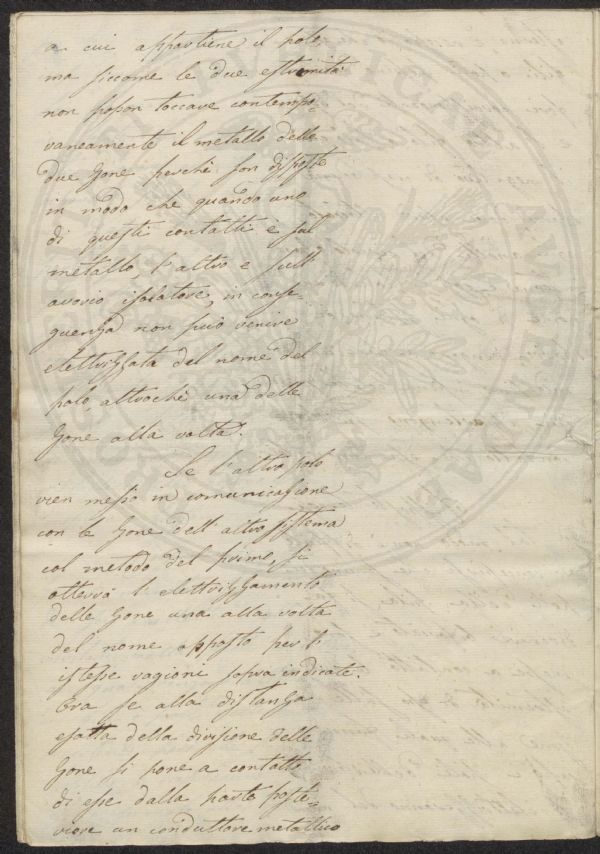 a cui appartiene il polo,
ma siccome le due estremità
non posson toccare contempo=
raneamente il metallo delle
due Zone perchè son disposte
in modo che quando uno
di questi contatti è sul
metallo, l'altro è sull'
avorio isolatore, in conse=
guenza non può venire
elettrizzata del nome del
polo, altrochè una delle
Zone alla volta.
Se l'altro polo
vien messo in comunicazione
con le Zone dell'altro sistema
col metodo del primo, si
otterrà l'elettrizzamento
delle Zone una alla volta
del nome opposto per l'
istesse ragioni sopra indicate.
Ora se alla distanza
esatta della divisione delle
Zone si pone a contatto
di esse dalla parte poste=
riore un conduttore metallico